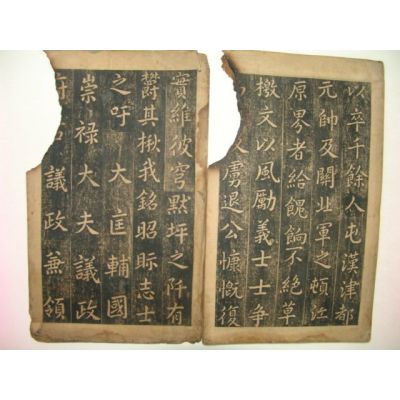 以卒千餘人屯漢津都
元帥及關北軍之頓江
原界者給餽餉不絶草
檄文以風勵義士士爭
虜退公慷慨復
實維彼穹黙坪之阡有
欝其楸我銘昭眎志士
之吁 大匡輔國
崇祿大夫議政
議政兼領